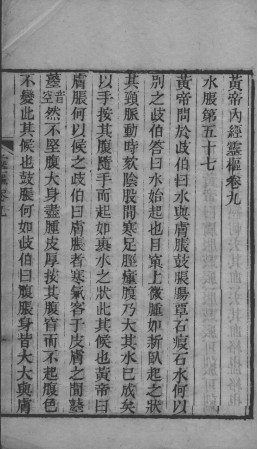 黃帝內經靈樞卷九
水脹第五十七
黃帝問於歧伯曰水與膚脹鼓脹腸覃石瘕石水何以
別之歧伯答曰水始起也目窠上微腫如新臥起之狀
其頸脈動時欬陰股間寒足脛瘇腹乃大其水已成矣
以手按其腹隨手而起如裹水之狀此其候也黃帝曰
膚脹何以候之歧伯曰膚脹者寒氣客于皮膚之間𪔣
𪔣音空然不堅腹大身盡腫皮厚按其腹窅而不起腹色
不變此其候也鼓脹何如歧伯曰腹脹身皆大大與膚